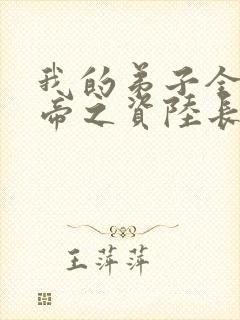 我的弟子全
帝之資陸長
王萍萍